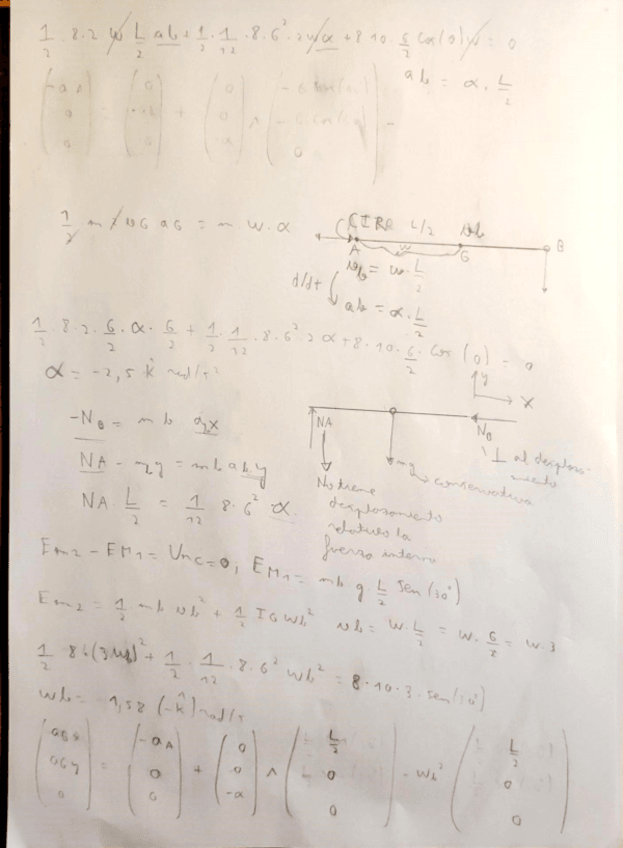 1/2 · 8 · 2 w L/2 ab + 1/2 · 1/12 · 8 · 6² · 2 w α + 8 · 10 · 6/2 cos(0) w = 0
ab = α · L/2
1/2 m 2 vG aG = m · w · α
CIRR L/2 vb
A w G B
vb = w · L/2
d/dt
ab = α · L/2
1/2 · 8 · 2 · 6/2 · α · 6/2 + 1/2 · 1/12 · 8 · 6² · 2 α + 8 · 10 · 6/2 · cos(0) = 0
α = -2,5 k̂ rad/s²
y
x
-NB = mb aGx
NA - mg = mb ab y
NA L/2 = 1/12 8 · 6² α
NA mg NB
⊥ al desplazamiento
conservativa
No tiene
desplazamiento
relativo la
fuerza interna
Em2 - EM1 = Unc = 0, EM1 = mb g · L/2 sen(30°)
Em2 = 1/2 mb vb² + 1/2 IG wb² vb = w · L/2 = w · 6/2 = w · 3
1/2 8 · (3wb)² + 1/2 · 1/12 · 8 · 6² wb² = 8 · 10 · 3 · sen(30°)
wb = 1,58 (-k̂) rad/s
(aGx aGy 0) = (-aA 0 0) + (0 0 -α) ∧ (L/2 0 0) - wb² (L/2 0 0)